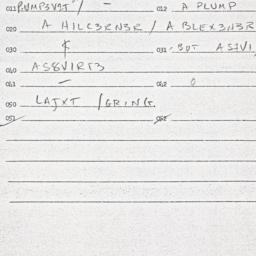 011 PUMP3V9T / - 012 A PLUMP
020 A HILC3RN3R / A BLEX3N3R
030 031
040 AS8V1RT3
041 - 042 0
050 LAJXT / GRING.
051 052